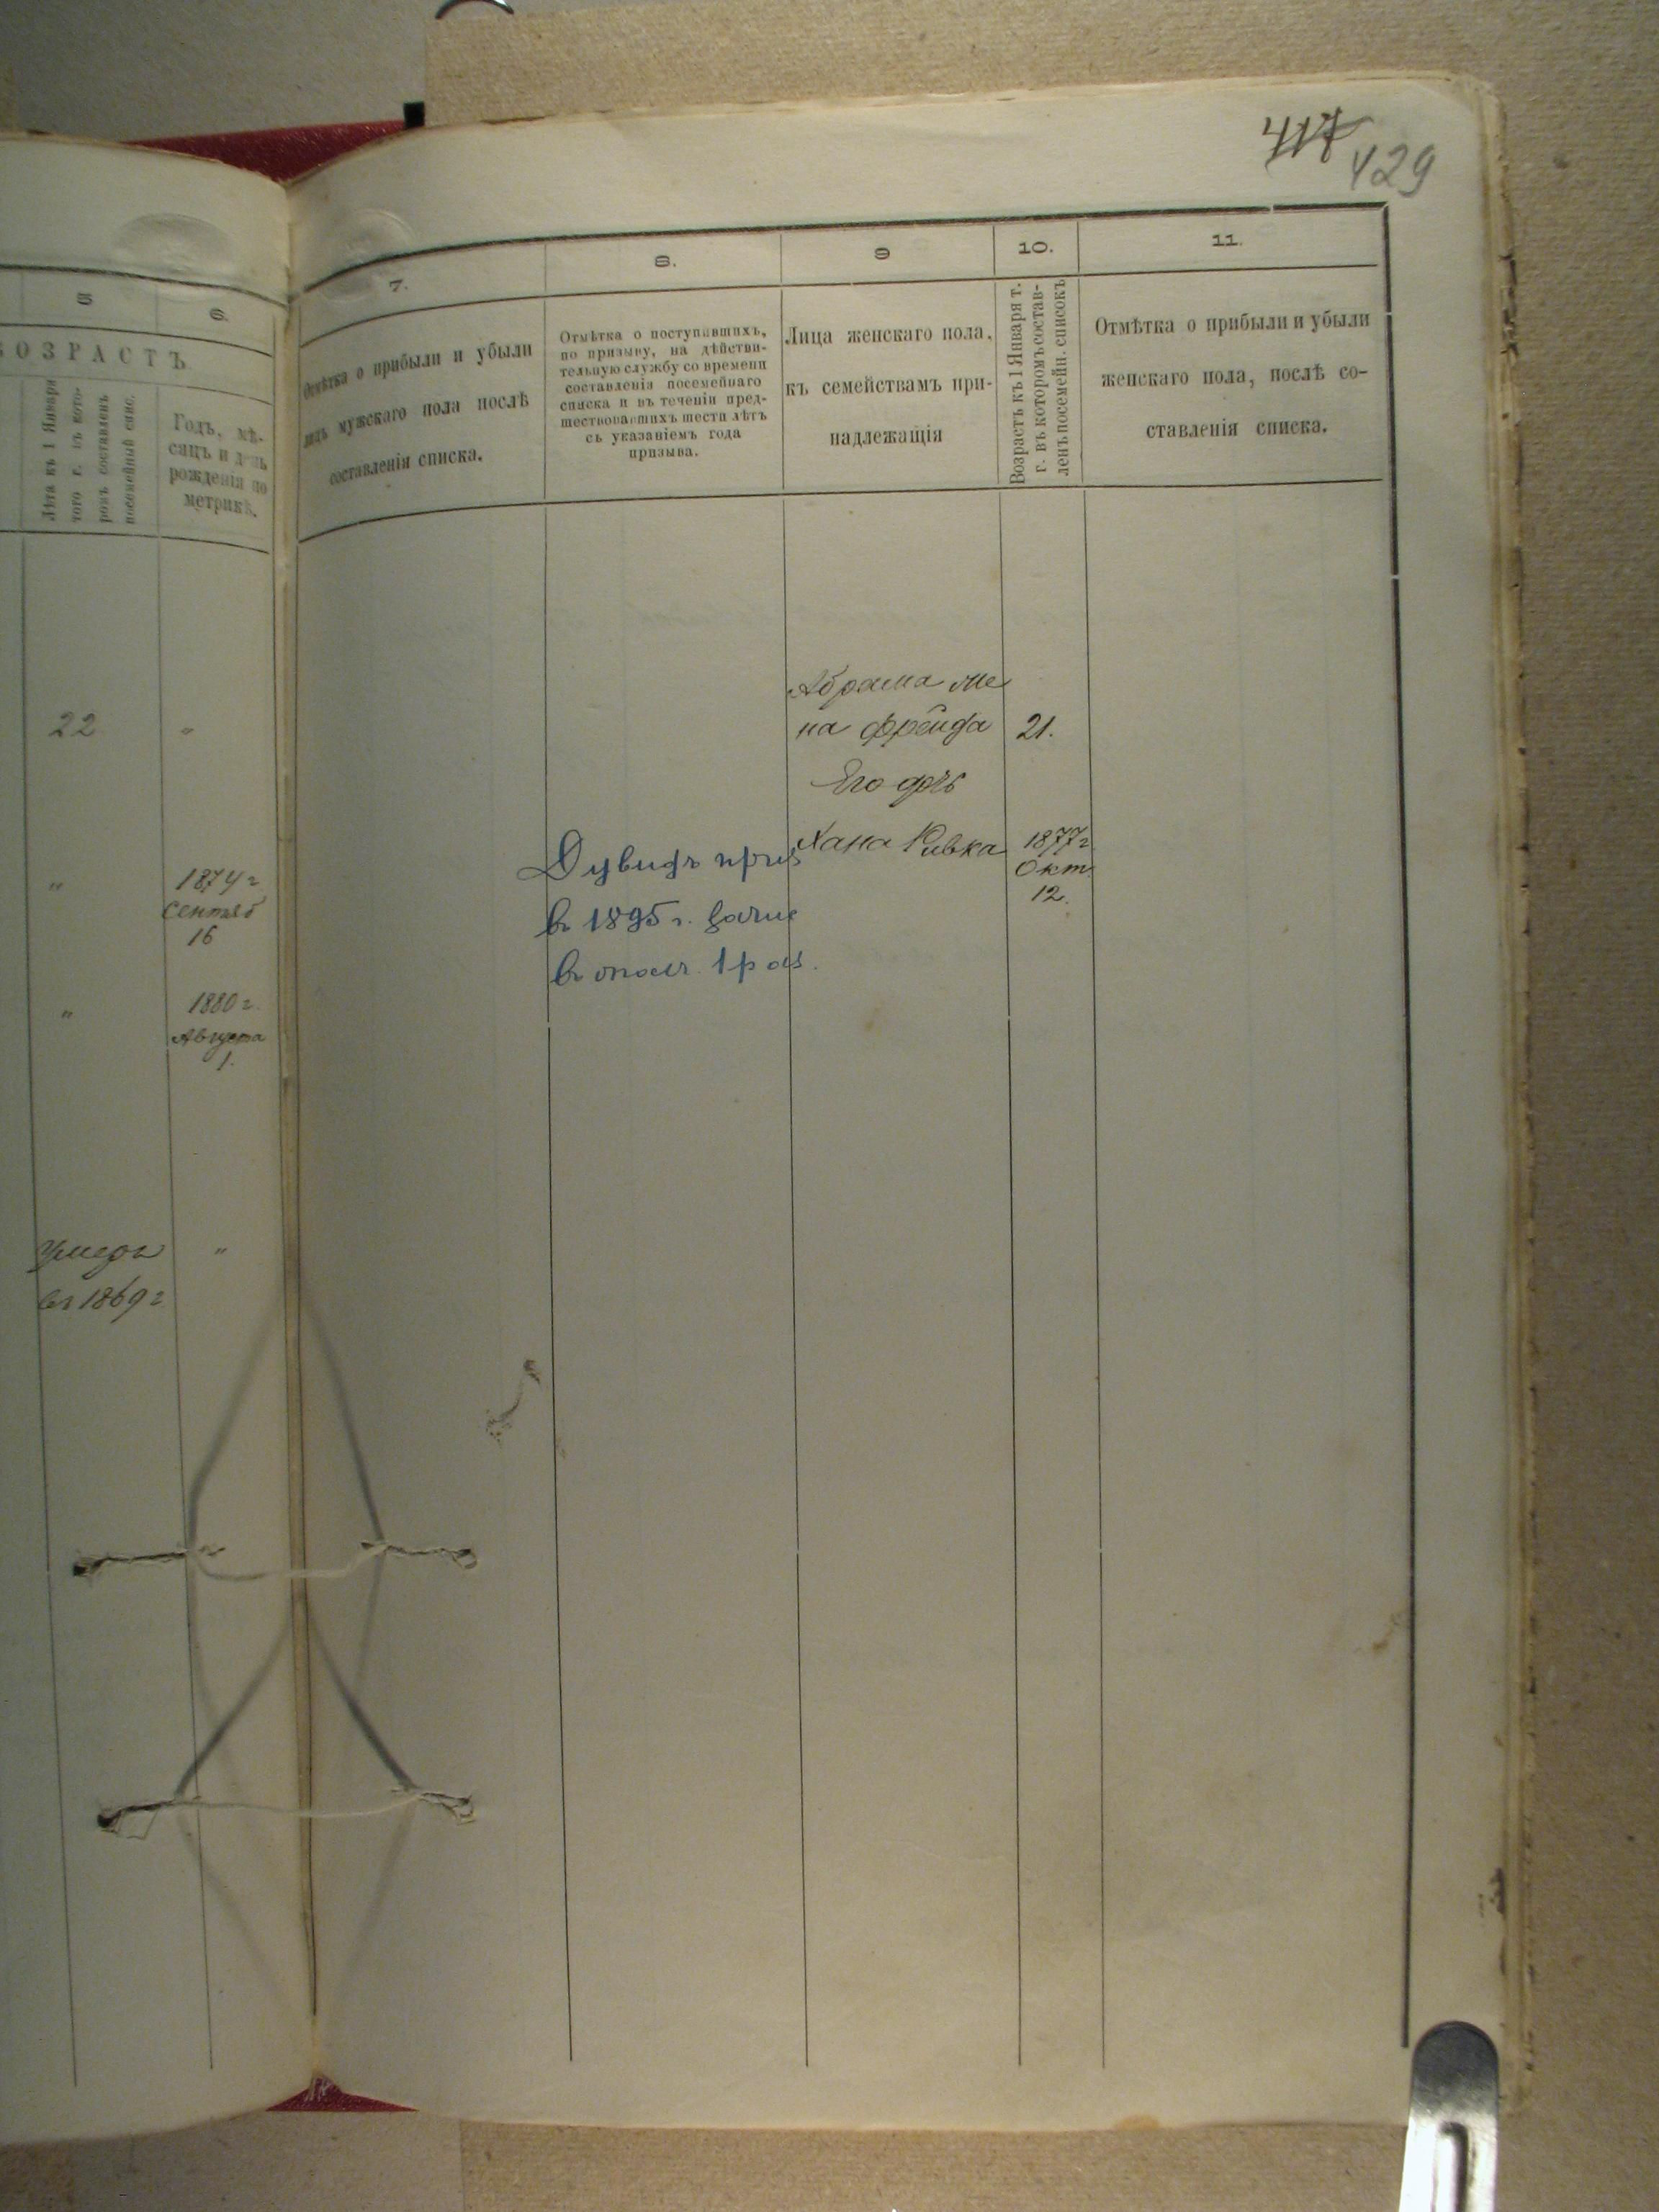 417 429
5
6.
ВОЗРАСТЪ
Лѣта къ 1 Января
того г. въ кото-
ромъ составленъ
посемейный спис.
Годъ, мѣ-
сяцъ и день
рожденія по
метрикѣ.
22 "
" 1874 г
Сентяб
16
" 1880 г.
Августа
1.
Умеръ "
въ 1869 г
7.
Отмѣтка о прибыли и убыли
лицъ мужскаго пола послѣ
составленія списка.
8.
Отмѣтка о поступившихъ,
по призыву, на дѣйстви-
тельную службу со времени
составленія посемейнаго
списка и въ теченіи пред-
шествовавшихъ шести лѣтъ
съ указаніемъ года
призыва.
Дувидъ приз
в 1895 г. зачис
в опол. 1 раз.
9
Лица женскаго пола,
къ семействамъ при-
надлежащія
Абрама же
на Фрейда
Его дочь
Хана Ривка
10.
Возрастъ къ 1 Января т.
г. въ которомъ состав-
ленъ посемейн. списокъ
21.
1877 г
Окт.
12.
11.
Отмѣтка о прибыли и убыли
женскаго пола, послѣ со-
ставленія списка.